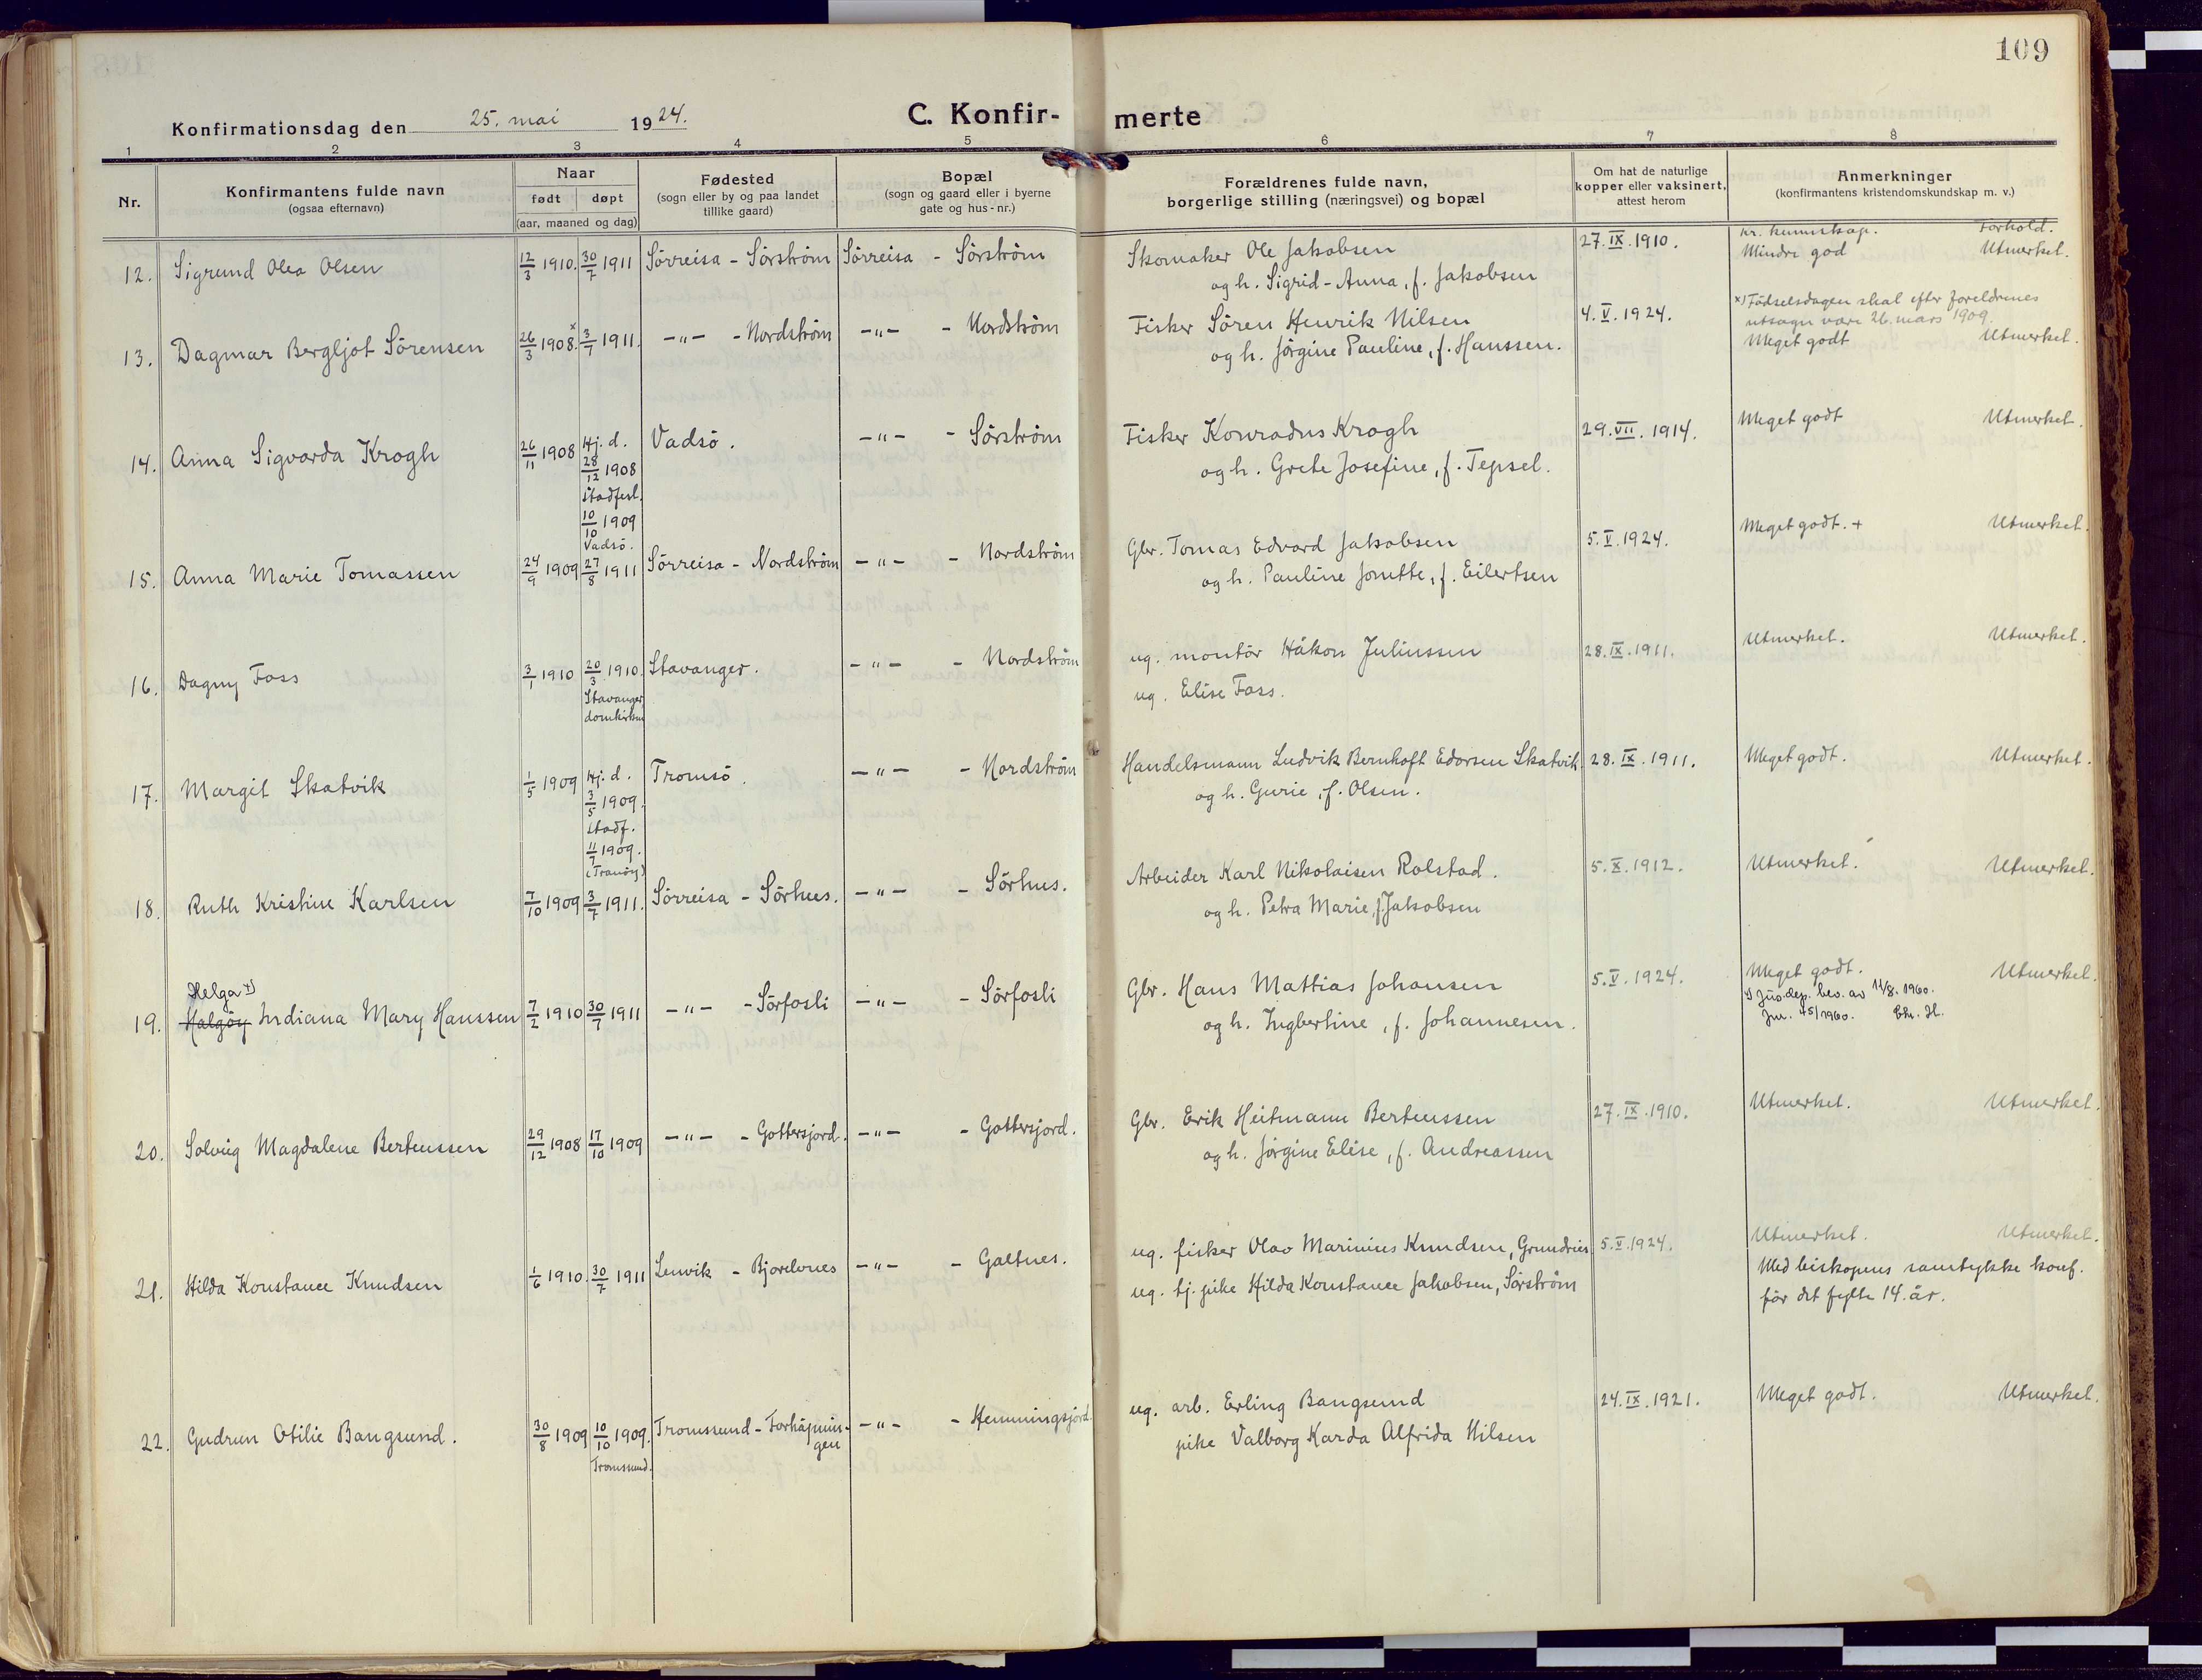 109
Konfirmationsdag den 25. mai 1924.
C. Konfir-merte
1 2 3 4 5 6 7 8
Nr.
Konfirmantens fulde navn
(ogsaa efternavn)
Naar
født døpt
(aar, maaned og dag)
Fødested
(sogn eller by og paa landet
tillike gaard)
Bopæl
(sogn og gaard eller i byerne
gate og hus-nr.)
Forældrenes fulde navn,
borgerlige stilling (næringsvei) og bopæl
Om hat de naturlige
kopper eller vaksinert,
attest herom
Anmerkninger
(konfirmantens kristendomskundskap m. v.)
kr. kunnskap. Forhold.
12. Sigrund Olea Olsen 12/3 1910. 30/7 1911 Sørreisa - Sørstrøm Sørreisa - Sørstrøm Skomaker Ole Jakobsen 27.IX.1910. Mindre god Utmerket.
og h. Sigrid-Anna, f. Jakobsen
x) Fødselsdagen skal efter foreldrenes
utsagn være 26. mars 1909.
13. Dagmar Bergljot Sørensen 26/3 1908.x 3/7 1911. -"- - Nordstrøm -"- - Nordstrøm Fisker Søren Henrik Nilsen 4.V.1924. Meget godt Utmerket.
og h. Jørgine Pauline, f. Hanssen.
14. Anna Sigvarda Krogh 26/11 1908 Hj. d. Vadsø. -"- - Sørstrøm Fisker Konradus Krogh 29.VII.1914. Meget godt Utmerket.
28/12 1908 og h. Grete Josefine, f. Tepsel.
Stadfest.
10/10 1909
Vadsø.
15. Anna Marie Tomassen 24/9 1909 27/8 1911 Sørreisa - Nordstrøm -"- - Nordstrøm Gbr. Tomas Edvard Jakobsen 5.V.1924. Meget godt. + Utmerket.
og h. Pauline Jonette, f. Eilertsen
16. Dagny Foss 3/1 1910 20/3 1910. Stavanger. -"- - Nordstrøm ug. montør Håkon Juliussen 28.IX.1911. Utmerket. Utmerket.
Stavanger
domkirken ug. Elise Foss.
17. Margit Skatvik 1/5 1909 Hj. d. Tromsø. -"- - Nordstrøm Handelsmann Ludvik Bernhoft Edvarsen Skatvik 28.IX.1911. Meget godt. Utmerket.
3/5 1909. og h. Gurie, f. Olsen.
stadf.
11/7 1909.
(Tranøy)
18. Ruth Kristine Karlsen 7/10 1909 3/7 1911. Sørreisa - Sørhus. -"- - Sørhus. Arbeider Karl Nikolaisen Rolstad. 5.X.1912. Utmerket. Utmerket.
og h. Petra Marie, f. Jakobsen
Helga x)
19. Halgøy Indiana Mary Hanssen 7/2 1910 30/7 1911 -"- - Sørfosli -"- - Sørfosli Gbr. Hans Mattias Johansen 5.V.1924. Meget godt. Utmerket.
og h. Ingbertine, f. Johannesen. x) Jus.dep. bev. av 11/8. 1960.
Jnr. 45/1960. Chr. H.
20. Solveig Magdalene Berteussen 29/12 1908 17/10 1909 -"- - Gottersjord. -"- - Gottersjord. Gbr. Erik Heitmann Berteussen 27.IX.1910. Utmerket. Utmerket.
og h. Jørgine Elise, f. Andreassen
21. Hilda Konstance Knudsen 1/6 1910. 30/7 1911 Lenvik - Bjorelvnes -"- - Galtnes. ug. fisker Olav Marinius Knudsen, Grundreis 5.V.1924. Utmerket. Utmerket.
ug. tj. pike Hilda Konstance Jakobsen, Sørstrøm Med biskopens samtykke konf.
før det fylte 14. år.
22. Gudrun Otilie Bangsund. 30/8 1909 10/10 1909. Tromsund - Forhåpnin-gen -"- - Hemmingsjord. ug. arb. Erling Bangsund 24.IX.1921. Meget godt. Utmerket.
Tromssund. pike Valborg Karda Alfrida Nilsen